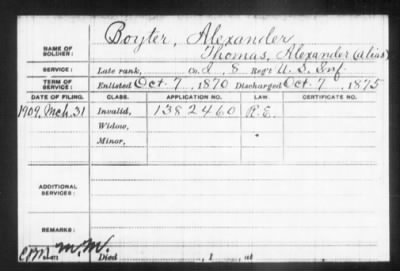 Boyter, Alexander
NAME OF SOLDIER: Thomas, Alexander (alias)
SERVICE: Late rank, Co. I, 8 Reg't U. S. Inf.
TERM OF SERVICE: Enlisted Oct. 7, 1870 Discharged Oct. 7, 1875
DATE OF FILING. CLASS. APPLICATION NO. LAW. CERTIFICATE NO.
1909, Mch. 31 Invalid, 1382460 R.E.
Widow,
Minor,
ADDITIONAL SERVICES:
REMARKS:
M.M. Died , 1 , at